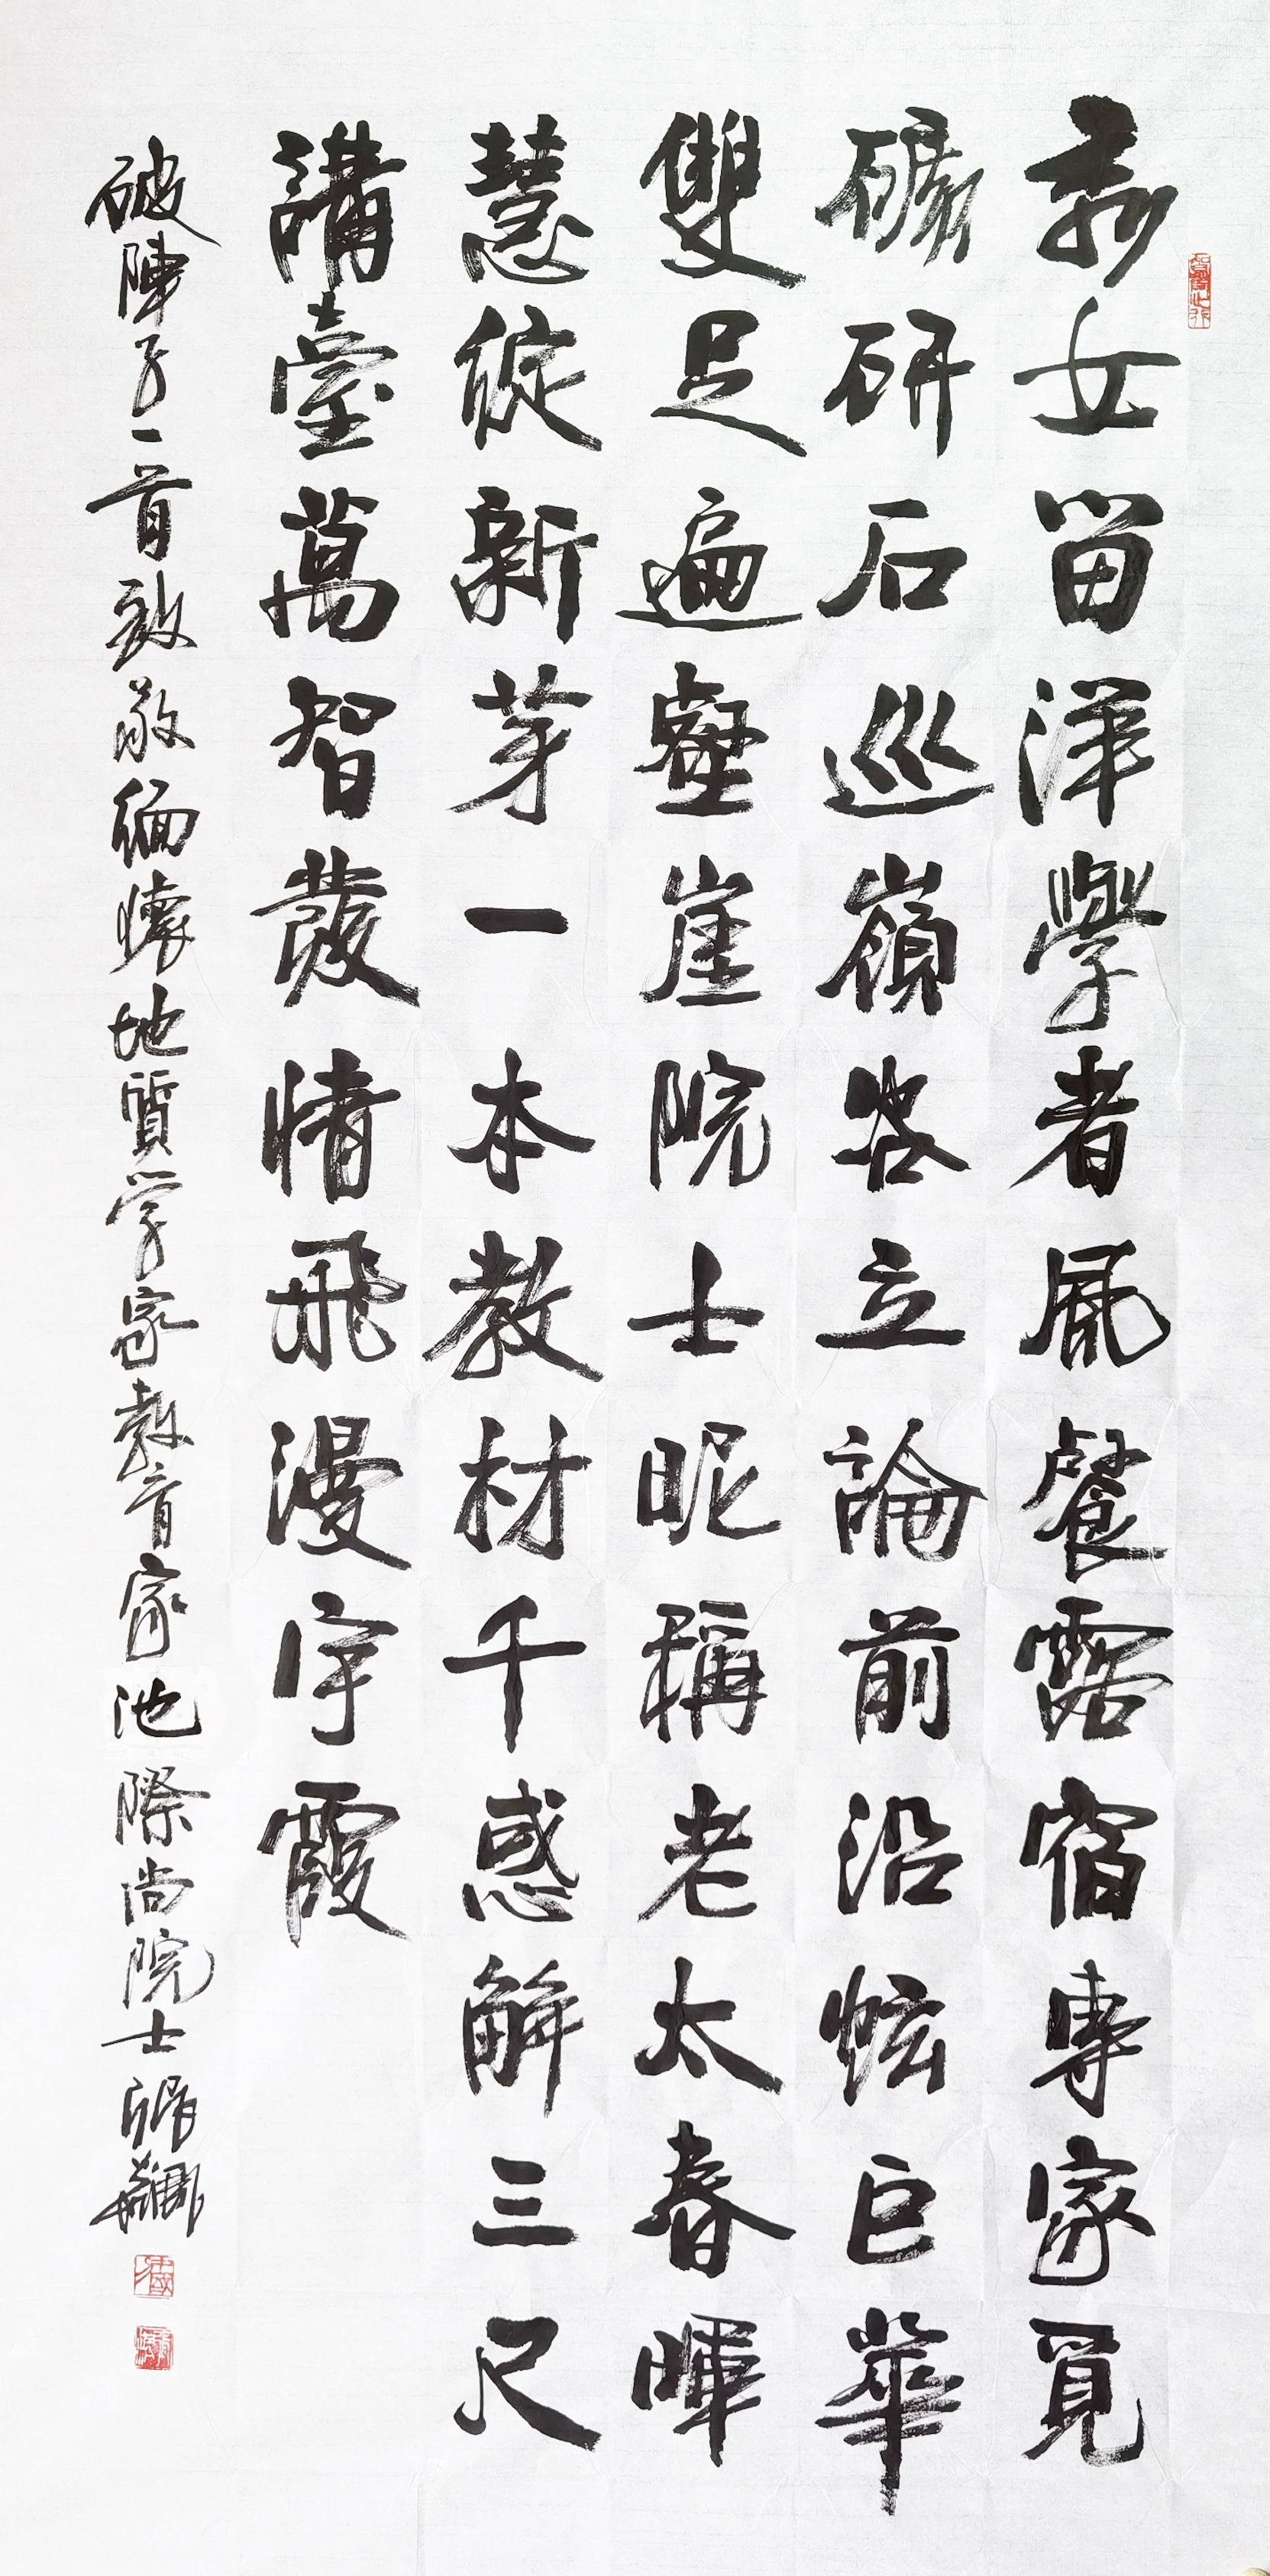 女留洋學者風餐露宿專家覓
礦研石巡嶺客立論前沿炫巨華
雙足遍壑崖院士昵稱老太春暉
慧綻新芽一本教材千惑解三尺
講臺萬智發情飛漫宇霞
破陣子一首致敬緬懷地質学家教育家池際尚院士